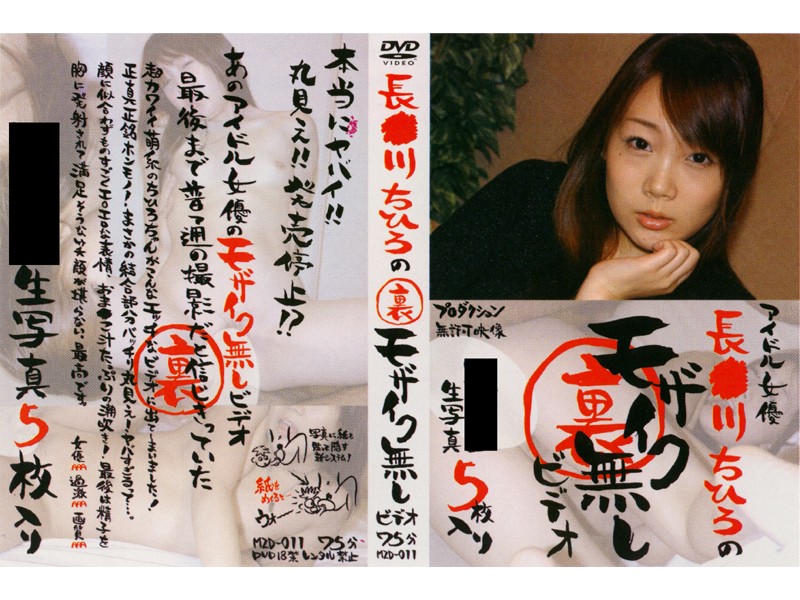 本当にヤバイ!!
丸見え!!発売停止!?
あのアイドル女優のモザイク無しビデオ
最後まで普通の撮影だと信じきっていた
超カワイイ萌系のちひろちゃんがこんなエッチなビデオに出てしまいました!
正真正銘ホンモノ!まさかの結合部分バッチリ丸見え!ヤバすぎるって…。
顔に似合わずものすごくエロエロな表情、おま●こ汁たっぷりの潮吹き!最後は精子を
胸に発射されて満足そうないい笑顔が堪らない!最高です。
女優AAA 過激AAA 画質AAA
裏
生写真5枚入り
写真に紙を
貼って隠す
新システム!
紙を
めくると…
ウォー
MZD-011 75分
DVD 18禁 レンタル禁止
DVD
VIDEO
長●川ちひろの
裏
モザイク無し
ビデオ
75分
MZD-011
アイドル女優
長●川ちひろの
モザイク無し
裏
ビデオ
プロダクション
無許可映像
生写真
5枚
入り